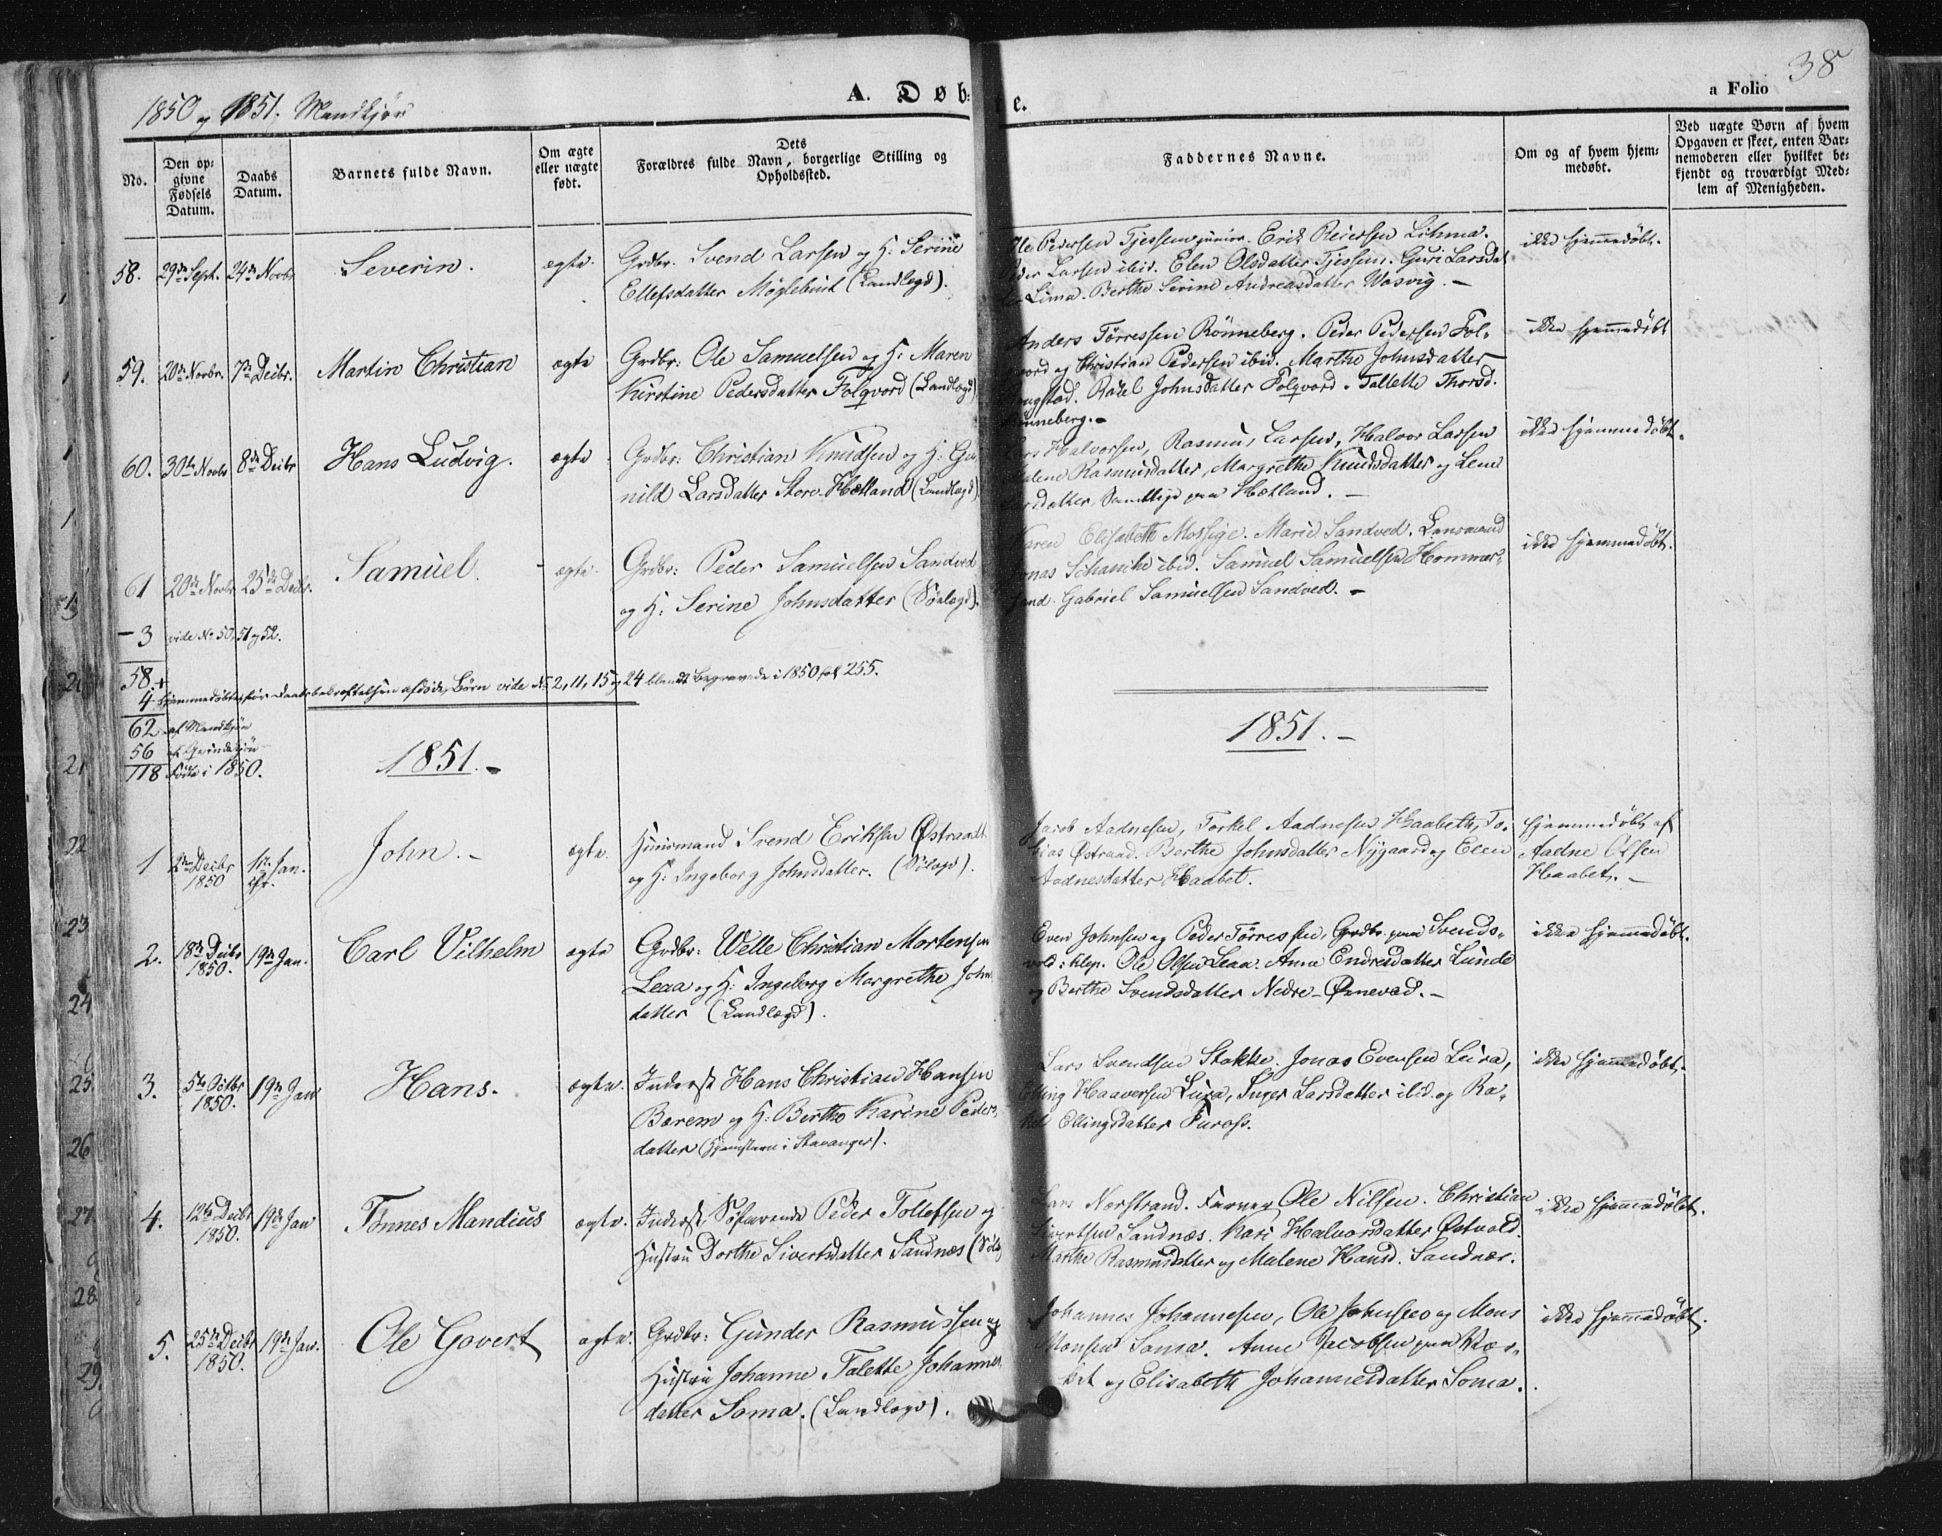 38
1850 og 1851. Mandkjøn
A. Døb- e.
a Folio
No.
Den op-
givne
Fødsels
Datum.
Daabs
Datum.
Barnets fulde Navn.
Om ægte
eller uægte
født.
Dets
Forældres fulde Navn, borgerlige Stilling og
Opholdssted.
Faddernes Navne.
Om og af hvem hjem-
medøbt.
Ved uægte Børn af hvem
Opgaven er skeet, enten Bar-
nemoderen eller hvilket be-
kjendt og troværdigt Med-
lem af Menigheden.
58. 29de Sept. 24de Novbr Severin. ægte. Grdbr. Svend Larsen og H: Serine
Ellefsdatter Møglebust (Landlægd).
Ole Pedersen Tjessem junior. Erik Reiersen Lihma.
Peder Larsen ibid. Elen Olsdatter Tjessem. Guri Larsdat-
ter Lima. Berthe Serine Andreasdatter Wasvig. –
ikke hjemmedøbt.
59. 20de Novbr. 7de Decbr. Martin Christian ægte Grdbr: Ole Samuelsen og H: Maren
Kirstine Pedersdatter Folqvord (Landlægd)
Anders Tørressen Rönneberg. Peder Pedersen Fol-
qvord og Christian Pedersen ibid. Marthe Johnsdatter
Rakel Johnsdatter Folqvord. Tallette Thorsd.
Rönneberg. –
ikke hjemmedøbt
60. 30te Novbr 8de Decbr Hans Ludvig. ægte Grdbr: Christian Knudsen og H: Gu-
nild Larsdatter Store-Hætland (Landlægd)
Lars Halvorsen, Rasmus Larsen, Halvor Larsen
Malene Rasmusdatter, Margrethe Knudsdatter og Lene
Larsdatter, Samtlige paa Hætland. –
ikke hjemmedøbt.
61 20de Novbr. 25de Decbr. Samuel. ægte. Grdbr: Peder Samuelsen Sandved
og H: Serine Johnsdatter (Sölægd).
Karen Elisabeth Mossige. Marie Sandved. Lensmand
Jonas Schanche ibid. Samuel Samuelsen Hommer-
sand. Gabriel Samuelsen Sandved. –
ikke hjemmedøbt.
– 3 vide No 50, 51 og 52.
58. +
4 hjemmedøbte, før Daabsbekræftelsen afdøde Børn vide No 2, 11, 15 og 24 blandt Begravede i 1850 fol 255.
62 af Mandkjøn
56 af Qvindekjøn
118 Fødte i 1850.
1851. –
1851. –
1 2den Decbr 1850 1ste Jan. John. – ægte. Huusmand Svend Eriksen Østraadt
og H: Ingeborg Johnsdatter. (Sölægd).
Jacob Aadnesen, Torkel Aadnesen Haabeth, To-
bias Østraad. Berthe Johnsdatter Nygaard og Elen
Aadnesdatter Haabet.
hjemmedøbt af
Aadne Olsen
Haabet. –
2. 18de Decbr 1850. 19de Jan. Carl Vilhelm ægte Grdbr: Welle Christian Mortensen
Leaa og H: Ingeborg Margrethe John
datter (Landlægd).
Even Johnsen og Peder Tørressen, Grdbr. paa Svends-
vold i Klep. Ole Olsen Leaa. Anna Endresdatter Lunde
og Berthe Svendsdatter Nedre-Ørnevad. –
ikke hjemmedøbt.
3. 5te Octbr 1850. 19de Jan Hans. ægte. Inderst Hans Christian Hansen
Barem og H: Berthe Karine Peders
datter (hjemstavn i Stavanger).
Lars Svendsen Stokke. Jonas Evensen Lura,
Elling Haaversen Lura, Inger Larsdatter ibid. og Ra-
kel Ellingsdatter Furaas.
ikke hjemmedøbt.
4. 12te Decbr 1850. 19de Jan Tønnes Mandius ægte. Inderst, Søfarende Peder Tollefsen og
Hustru Dorthe Sivertsdatter Sandnæs (Sölg
Lars Norstrand. Farver Ole Nilsen. Christian
Sivertsen Sandnæs. Kari Halvorsdatter Østvold.
Marthe Rasmusdatter og Malene Hansd. Sandnæs.
ikke hjemmedøbt.
5. 25de Decbr 1850. 19de Jan. Ole Govert ægte. Grdbr: Gunder Rasmussen og
Hustru Johanne Talette Johannes
datter Soma. (Landlægd).
Johannes Johannesen, Ole Johnsen og Mons
Monsen Soma. Anne Jacobsen paa
og Elisabeth Johannesdatter Soma.
ikke hjemmedøbt.